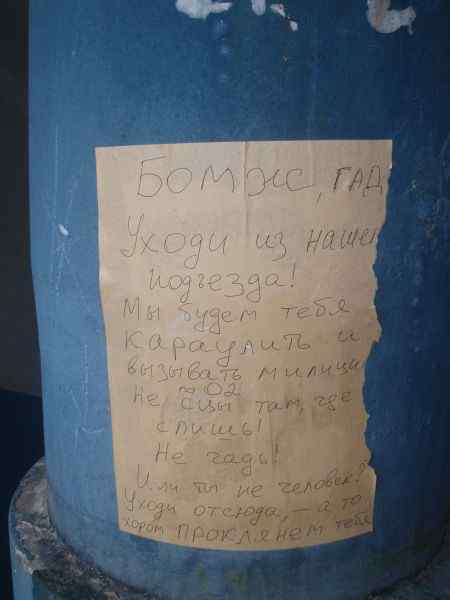 Бомж, гад
Уходи из нашег
подъезда!
Мы будем тебя
караулить и
вызывать милици
~02
Не сцы там, где
спишь!
Не гадь!
Или ты не человек?
Уходи отсюда, – а то
хором проклянем тебя